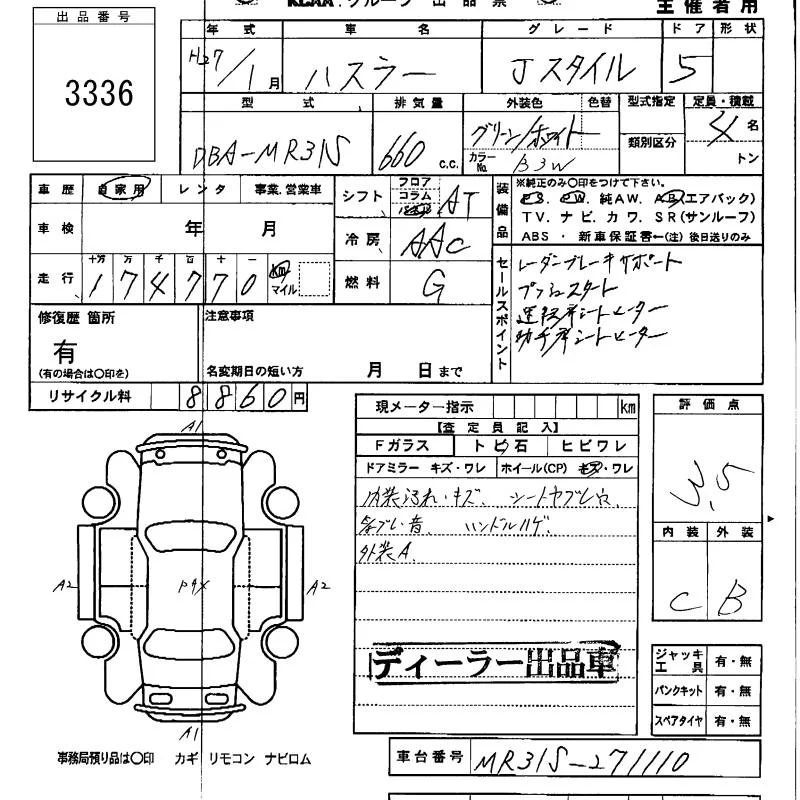 KCAA.グループ 出品票 主催者用
出品番号
3336
年式 車名 グレード ドア 形状
H27/1月 ハスラー Jスタイル 5
型式 排気量 外装色 色替 型式指定 定員・積載
DBA-MR31S 660 c.c. グリーン/ホワイト 類別区分 4名
カラーNo. B3W トン
車歴 自家用 レンタ 事業、営業車
シフト フロア コラム AT
装備品 ※純正のみ〇印をつけて下さい。
PS. PW. 純AW. AB(エアバック)
TV. ナビ. カワ. SR(サンルーフ)
ABS ・ 新車保証書←(注)後日送りのみ
車検 年 月
冷房 AAC
走行 十万 万 千 百 十 一
174770 km マイル
燃料 G
セールスポイント
レーダーブレーキサポート
プッシュスタート
運転席シートヒーター
助手席シートヒーター
修復歴 箇所
有
(有の場合は〇印を)
注意事項
名変期日の短い方 月 日まで
リサイクル料 8860円
現メーター指示 km
【査定員記入】
Fガラス トビ石 ヒビワレ
ドアミラー キズ・ワレ ホイール(CP) キズ・ワレ
内装汚れ・キズ. シートヤブレ穴
異音. ハンドルハゲ.
外装A
ディーラー出品車
評価点
3.5
内装 外装
C B
A1
A2 A2
A1
ジャッキ工具 有・無
パンクキット 有・無
スペアタイヤ 有・無
事務局預り品は〇印 カギ リモコン ナビロム
車台番号 MR31S-271110